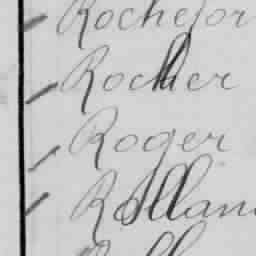 Rochefor
Rocher
Roger
Rollan